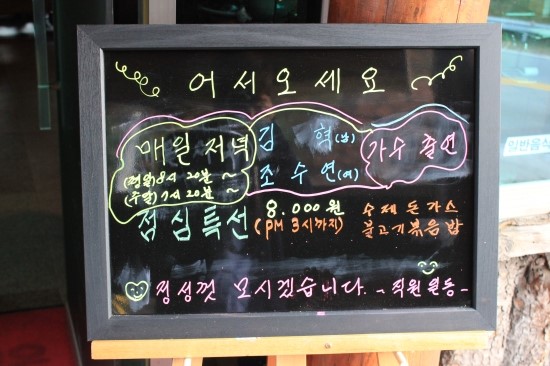 어서오세요
매일 저녁 김 혁(남) 가수 출연
(평일) 8시 20분 ~ 조 수 연(여)
(주말) 7시 20분 ~
점심특선 8.000원 수제 돈가스
(PM 3시까지) 불고기볶음밥
정성껏 모시겠습니다. -직원일동-
일반음식